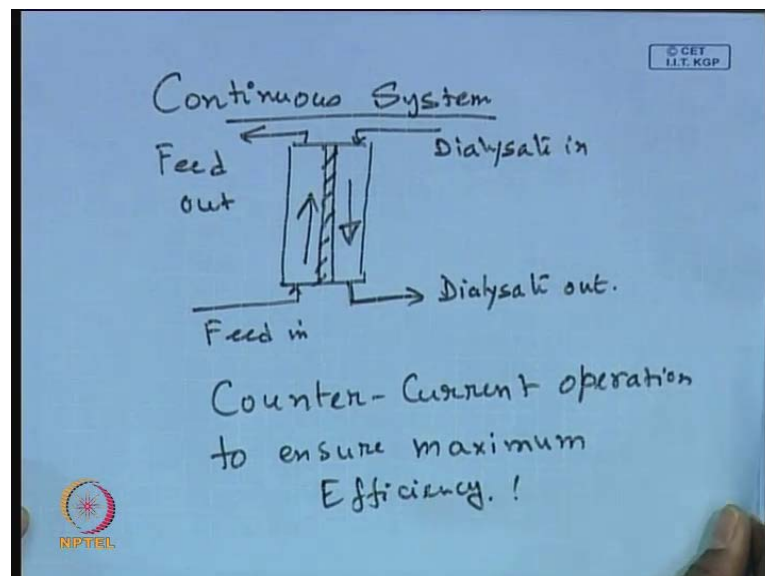 © CET
I.I.T. KGP
Continuous System
Feed out
Dialysate in
Dialysate out.
Feed in
Counter-Current operation
to ensure maximum
Efficiency. !
NPTEL